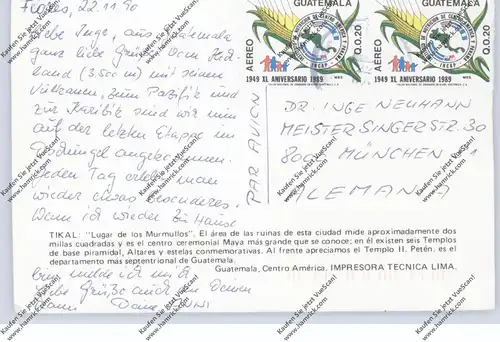 Flores, 22.11.90
Liebe Inge, aus Guatemala
ganz liebe Grüße. Vom Hoch-
land (3.500 m) mit seinen
Vulkanen, zum Pazifik und
zur Karibik sind wir nun
auf der letzten Etappe im
Dschungel angekommen.
Jeden Tag erlebt man
wieder etwas besonderes.
Wenn ich wieder zu Hause
bin, melde ich mich.
Liebe Grüße auch an Deinen
Mann Deine
PAR AVION
GUATEMALA
AEREO
Q.0.20
INCAP
1949 XL ANIVERSARIO 1989
GUATEMALA
AEREO
Q.0.20
INCAP
1949 XL ANIVERSARIO 1989
DR. INGE NEUMANN
MEISTERSINGERSTR. 30
MÜNCHEN
ALEMANIA
TIKAL: "Lugar de los Murmullos". El área de las ruinas de esta ciudad mide aproximadamente dos
millas cuadradas y es el centro ceremonial Maya más grande que se conoce; en él existen seis Templos
de base piramidal, Altares y estelas conmemorativas. Al frente apreciamos el Templo II. Petén, es el
departamento más septentrional de Guatemala.
Guatemala, Centro América. IMPRESORA TECNICA LIMA.
Kaufen Sie jetzt VueScan!
www.hamrick.com